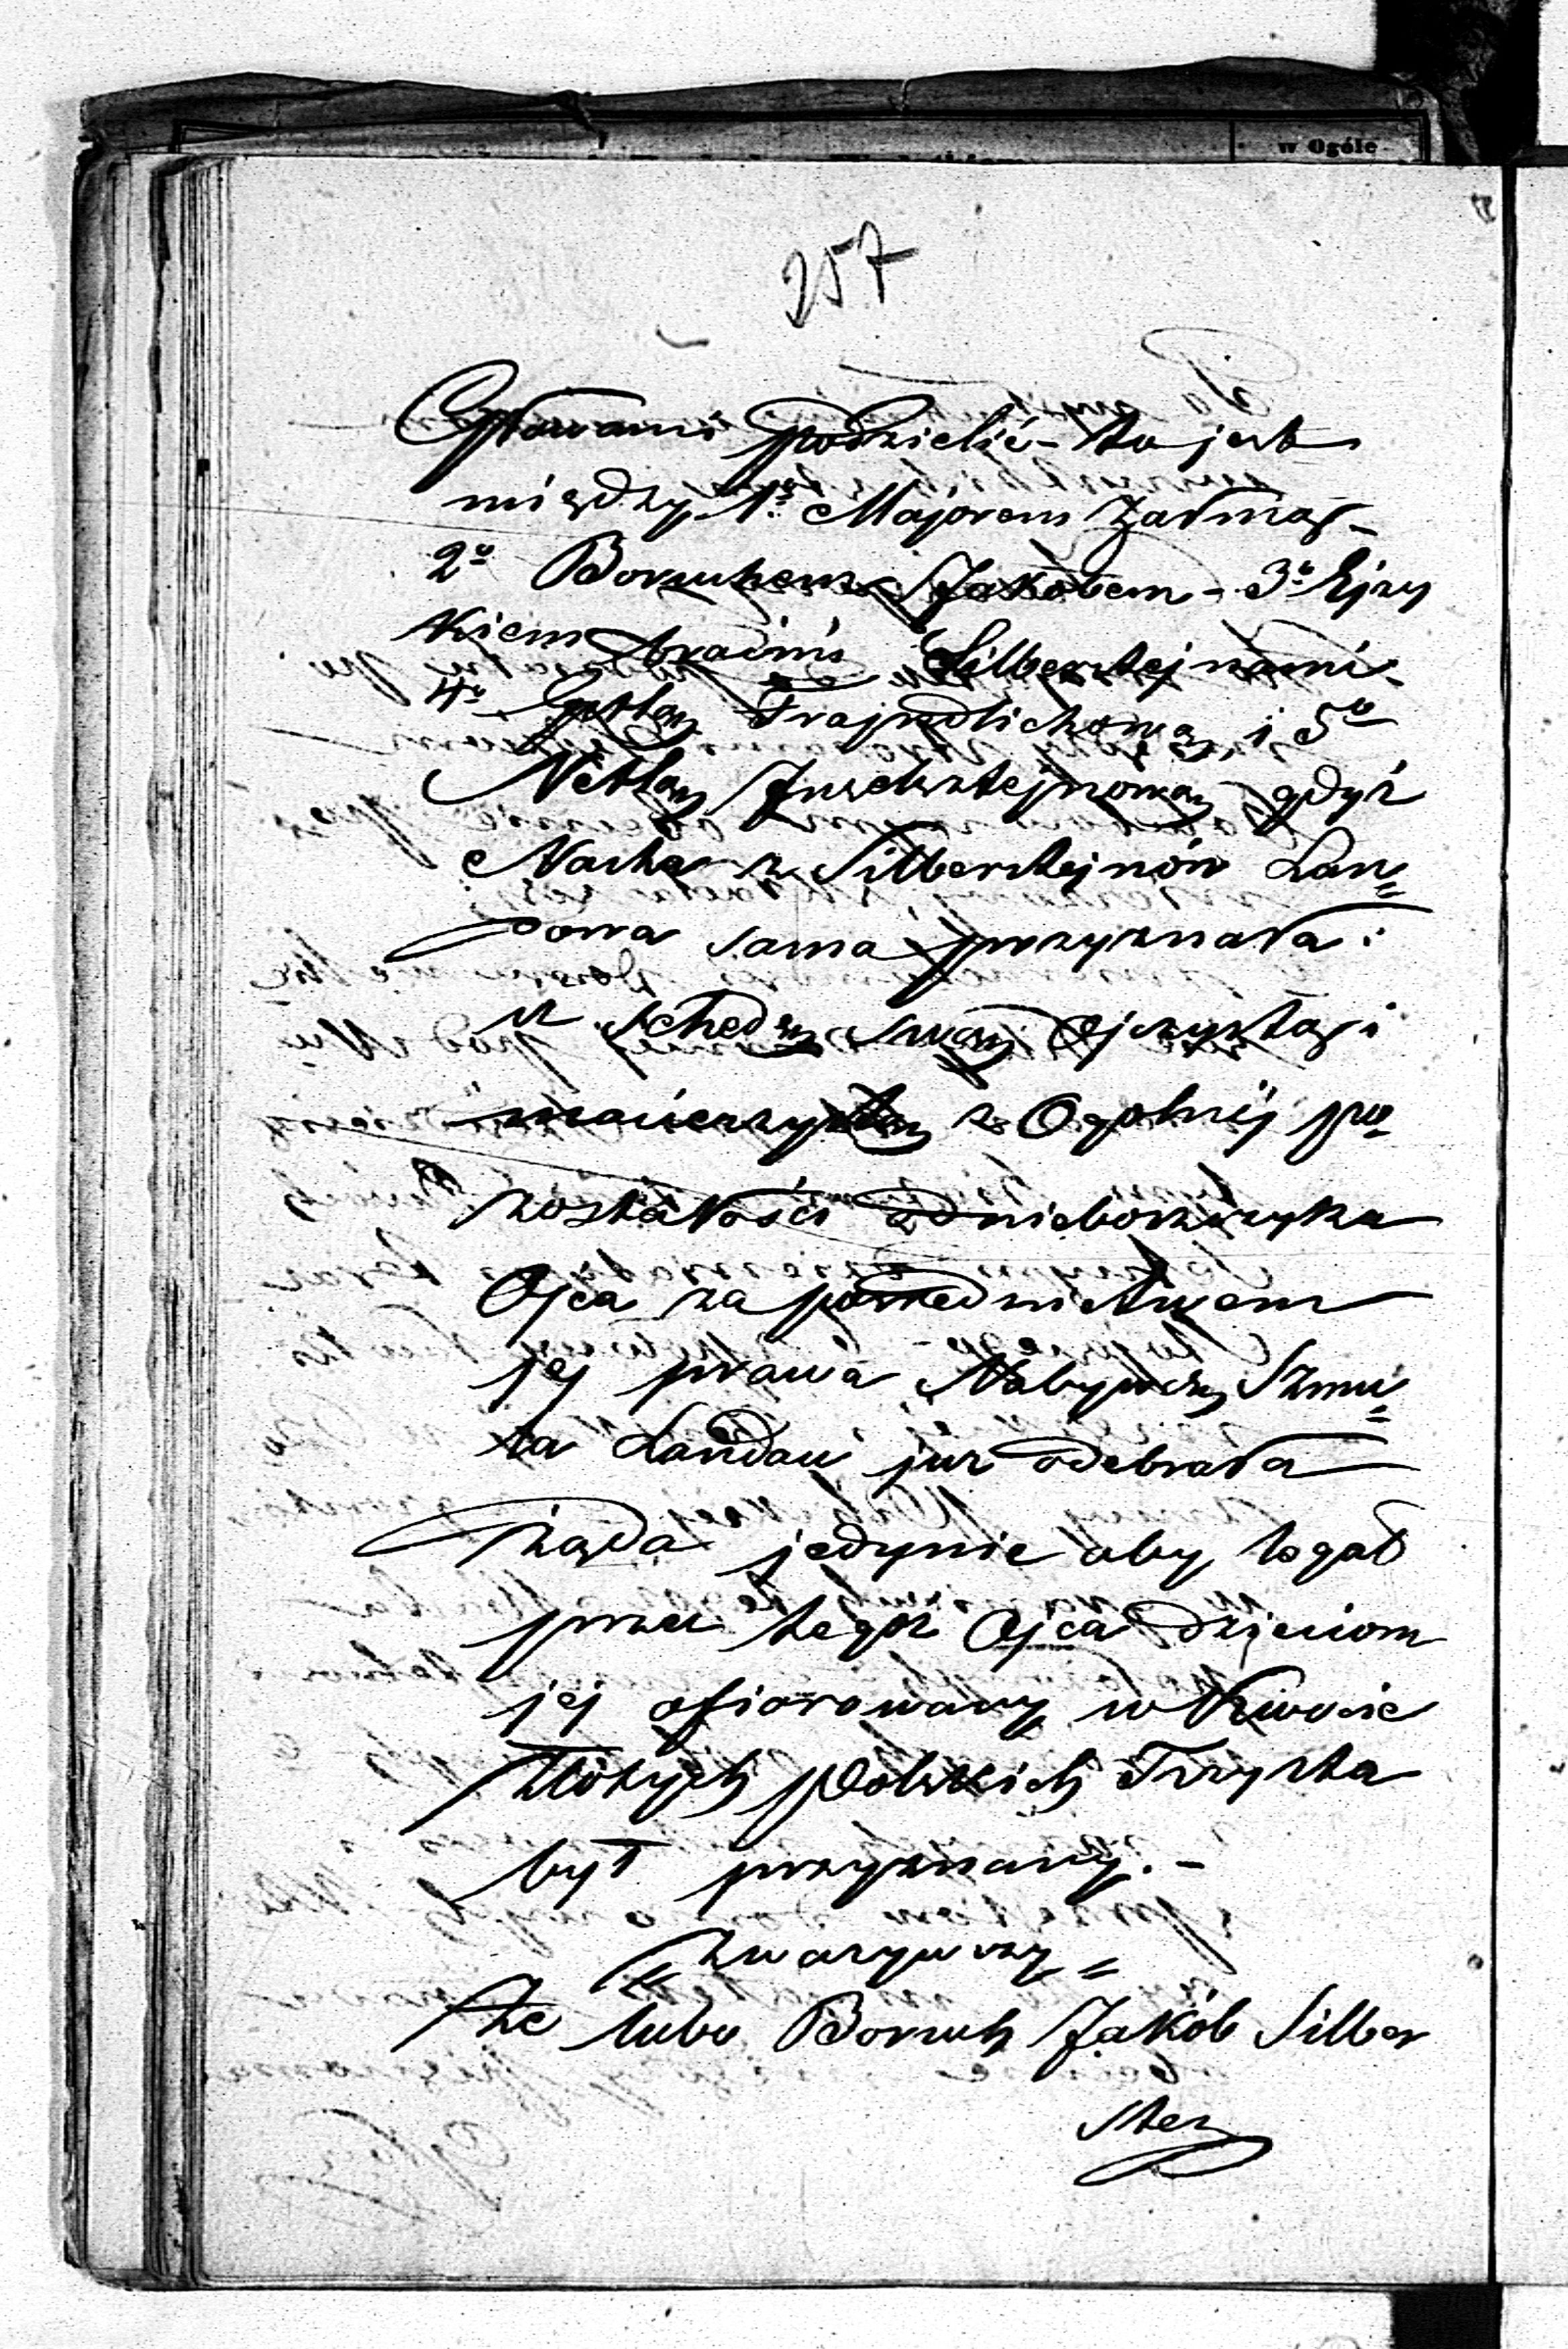 w Ogóle
257
podzielić - to jest
między 1º Majorem
2º Boruchem Jakóbem - 3º Ejzy
kiem braćmi Silbersztejnami
4º Frajndlichową i 5º
gdyż
z Silbersztejnów Lan=
dowa sama przyznała:
iż schedę swą Ojczystą i
macierzystą z Ogólnéj po=
zostałości od nieboszczyka
Ojca za pośrednictwem
jéj prawa Nabywcy Szmu=
la Landau już odebrała
żąda jedynie aby legat
przez tegoż Ojca dzieciom
jéj ofiarowany w kwocie
Złotych polskich Trzysta
był przyznany. -
Zważywszy =
że lubo Boruch Jakób Silber